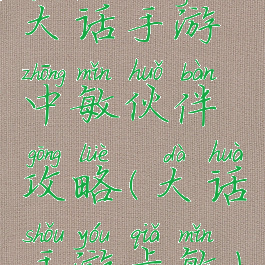 大话手游
zhōng mǐn huǒ bàn
中敏伙伴
gōng lüè dà huà
攻略(大话
shǒu yóu qiǎ mǐn
手游卡敏)